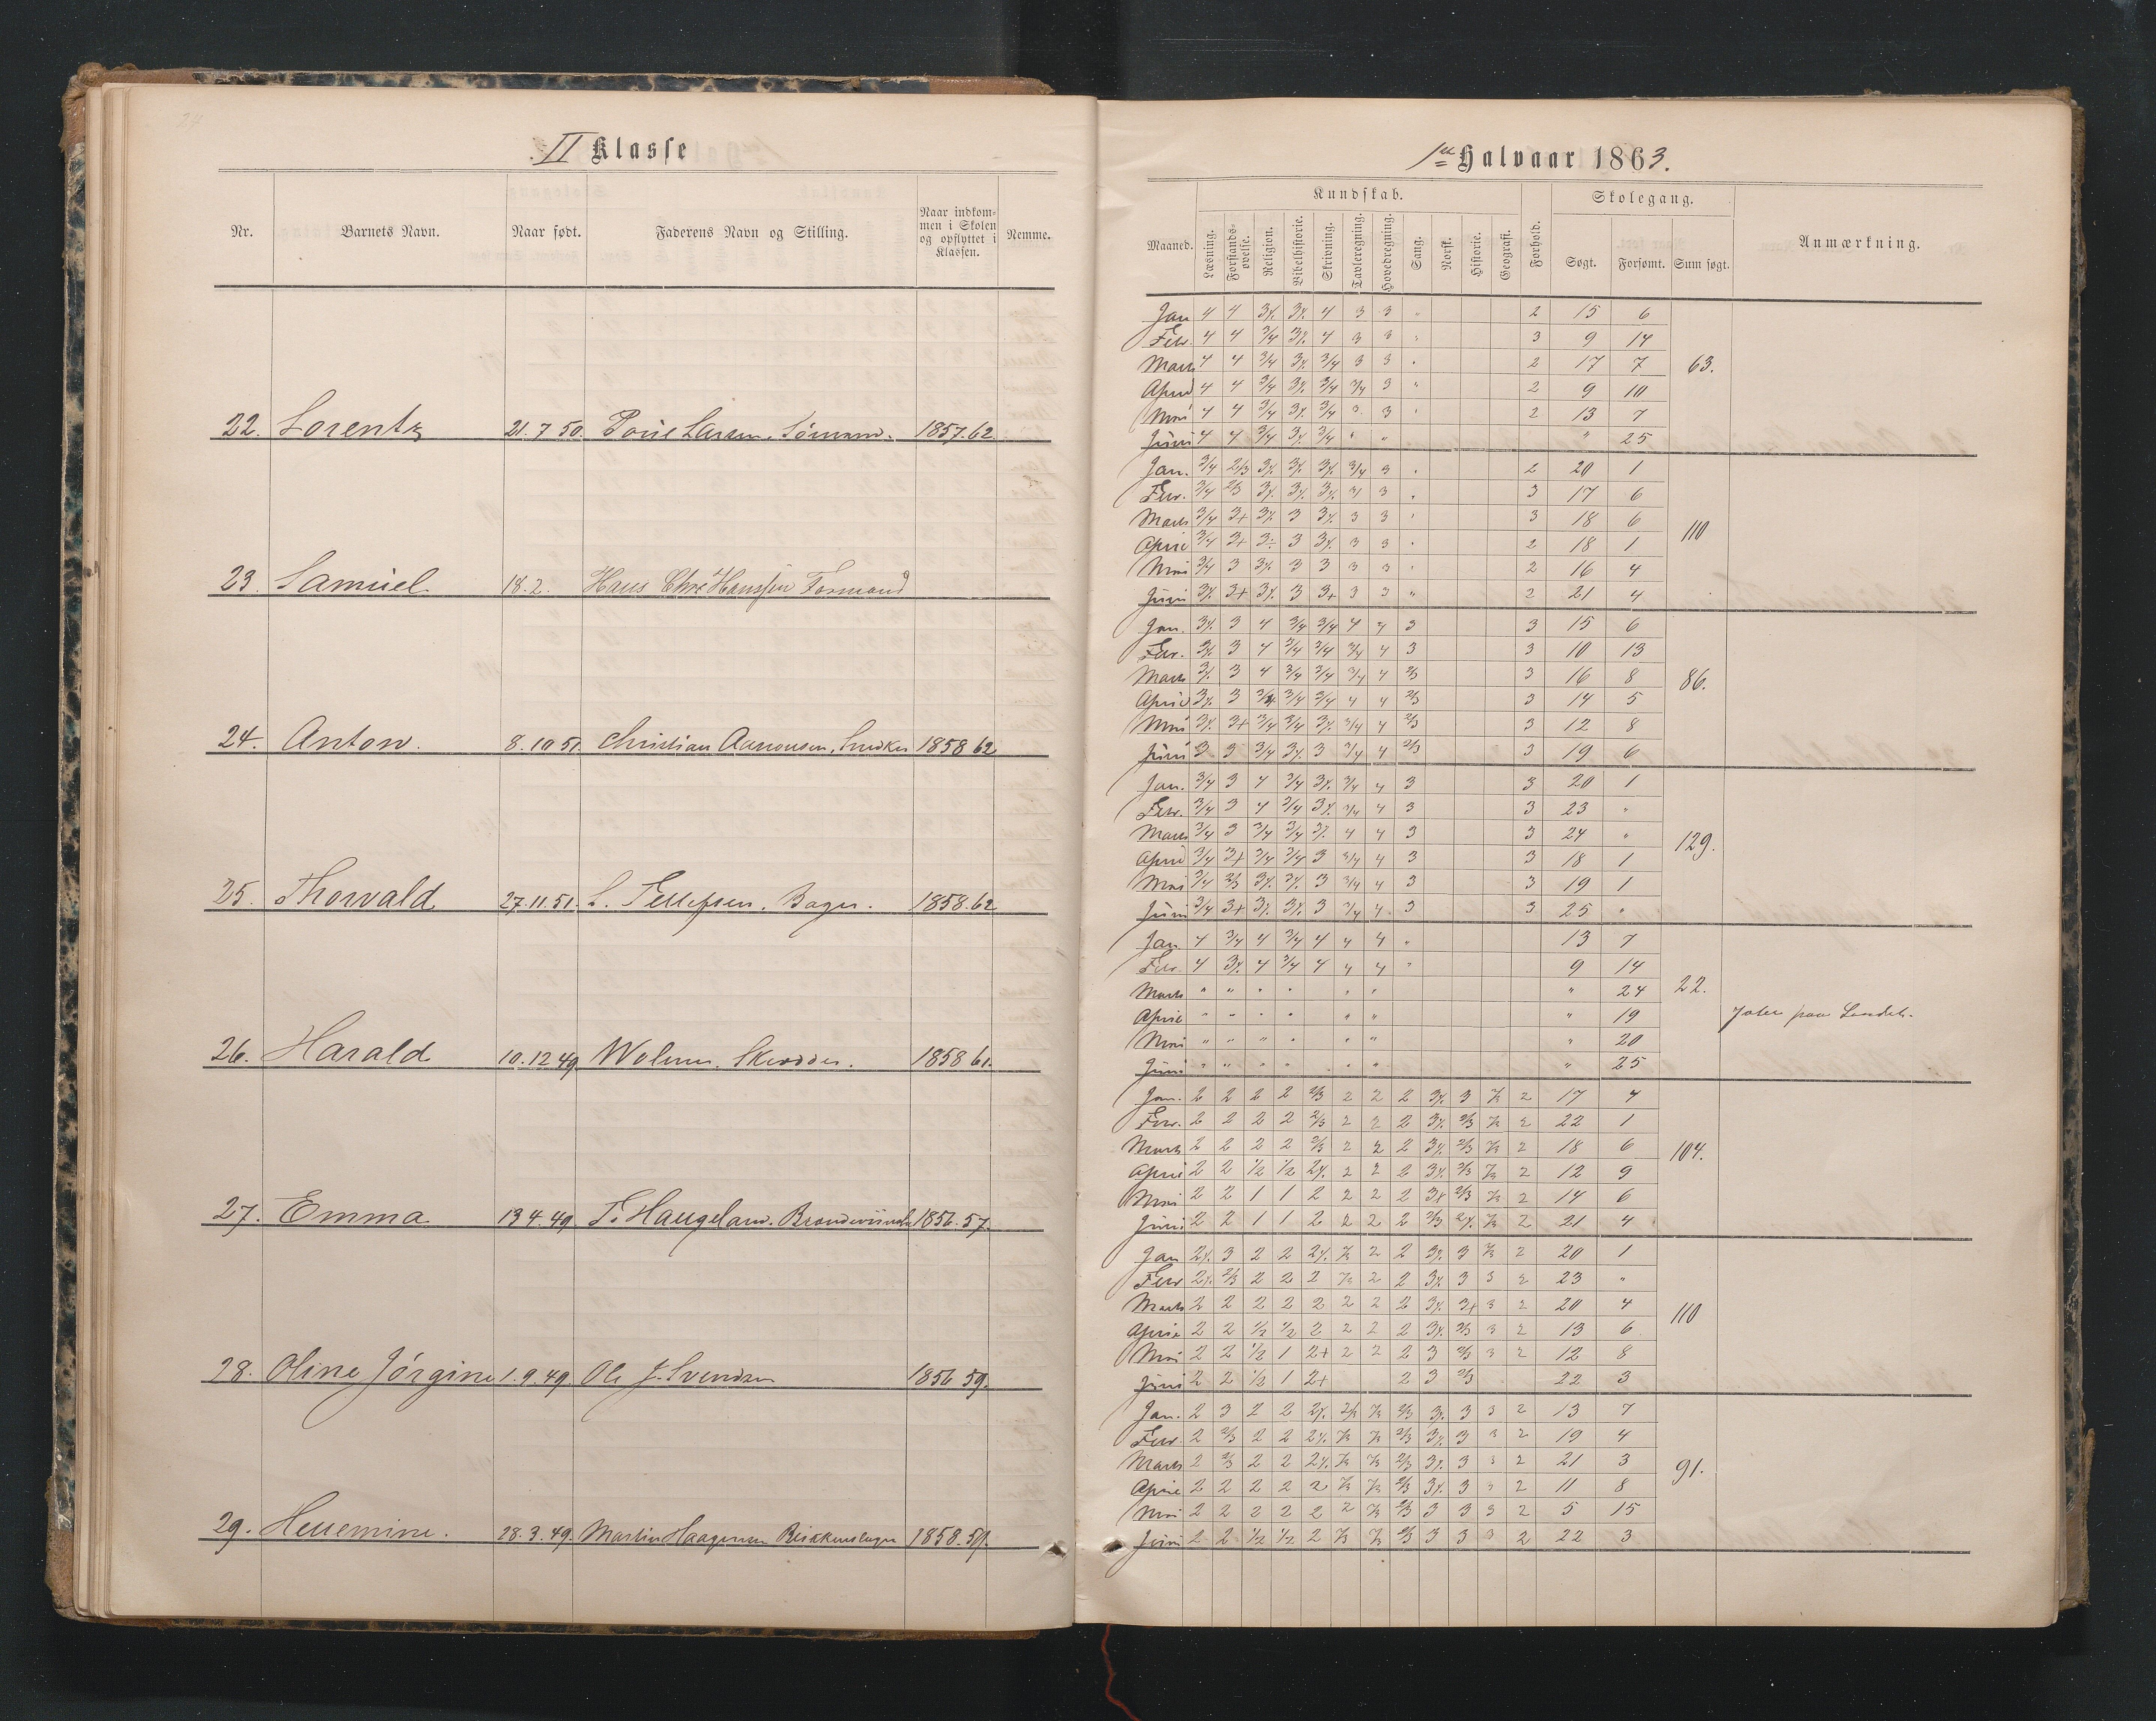 II Klasse
Nr. Barnets Navn. Naar født. Faderens Navn og Stilling. Naar indkommen i Skolen og opflyttet i Klassen. Nemme.
22. Lorentz 21.7 50. Larsen, Sömand. 1857.62
23. Samuel 18.2. Hans Chr Hanssen Formand
24. Anton. 8.10 51. Christian Aanonsen, Snedker 1858 62
25. Thorvald 27.11.51. L. Tellefsen. Bager. 1858.62
26. Harald 10.12 49 Wolmer. Skrædder. 1858 61.
27. Emma 13 4.49. T. Haugeland. 1856.57.
28. Oline Jörgine 1.9.49. Ole J. Svendsen 1856 59.
29. 28.3.49. Martin Haagensen 1858.59.
1ste Halvaar 1863.
Kundskab. Skolegang.
Maaned. Læsning. Forstandsøvelse. Religion. Bibelhistorie. Skrivning. Tavleregning. Hovedregning. Sang. Norsk. Historie. Geografi. Forhold. Søgt. Forsømt. Sum søgt. Anmærkning.
Jan 4 4 3 4 3 3 " 2 15 6
Febr. 4 4 3/4 4 3 3 3 9 14
Marts 4 4 3/4 3/4 3 3 2 17 7 63.
April 4 4 3/4 3/4 3/4 3 " 2 9 10
Mai 4 4 3/4 3/4 3 3 2 13 7
Juni 4 4 3/4 3/4 " " " 25
Jan. 3/4 2/3 3/4 3 2 20 1
Febr. 3/4 2/3 3 3 17 6
Marts 3/4 3+ 3 3 3 3 18 6 110
April 3/4 3+ 3 3 3 2 18 1
Mai 3/4 3 3 3 3 3 2 16 4
Juni 3+ 3 3+ 3 3 " 2 21 4
Jan. 3 4 3/4 3/4 4 4 3 3 15 6
Febr. 3 4 3/4 3/4 3/4 4 3 3 10 13
Marts 3 4 3/4 3/4 3/4 4 2/3 3 16 8 86.
April 3 3/4 3/4 3/4 4 4 2/3 3 14 5
Mai 3+ 3/4 3/4 3/4 4 2/3 3 12 8
Juni 3 3 3/4 3 3/4 4 2/3 3 19 6
Jan. 3/4 3 4 3/4 3/4 4 3 3 20 1
Febr. 3/4 3 4 3/4 3/4 4 3 3 23 "
Marts 3/4 3 3/4 3/4 4 4 3 3 24 " 129.
April 3/4 3+ 3/4 3/4 3 3/4 4 3 3 18 1
Mai 3/4 2/3 3 3/4 4 3 3 19 1
Juni 3/4 3+ 3 3/4 4 3 3 25 "
Jan. 4 3/4 4 3/4 4 4 4 " 13 7
Febr. 4 4 3/4 4 4 4 " 9 14
Marts " " " " " " " 24 22.
April " " " " " " " 19 paa Landet.
Mai " " " " " " " 20
Juni " " " " " " " 25
Jan. 2 2 2 2 2/3 2 2 2 3 2 17 4
Febr. 2 2 2 2 2/3 2 2 2 2/3 2 22 1
Marts 2 2 2 2 2/3 2 2 2 2/3 2 18 6 104.
April 2 2 1/2 1/2 2 2 2 2/3 2 12 9
Mai 2 2 1 1 2 2 2 2 2/3 2 14 6
Juni 2 2 1 1 2 2 2 2 2/3 2 21 4
Jan 3 2 2 2 2 3 2 20 1
Febr 2/3 2 2 2 2 2 3 3 2 23 "
Marts 2 2 2 2 2 2 2 2 3+ 3 2 20 4 110
April 2 2 1/2 1/2 2 2 2 2 2/3 3 2 13 6
Mai 2 2 1/2 1 2+ 2 2 2 3 2/3 3 2 12 8
Juni 2 2 1/2 1 2+ 2 3 2/3 22 3
Jan. 2 3 2 2 2/3 3 3 2 13 7
Febr. 2 2/3 2 2 2/3 3 3 2 19 4
Marts 2 2/3 2 2 2/3 3 3 2 21 3 91.
April 2 2 2 2 2 2/3 3 3 2 11 8
Mai 2 2 2 2 2 2 2/3 3 3 3 2 5 15
Juni 2 2 1/2 1/2 2 2/3 3 3 3 2 22 3